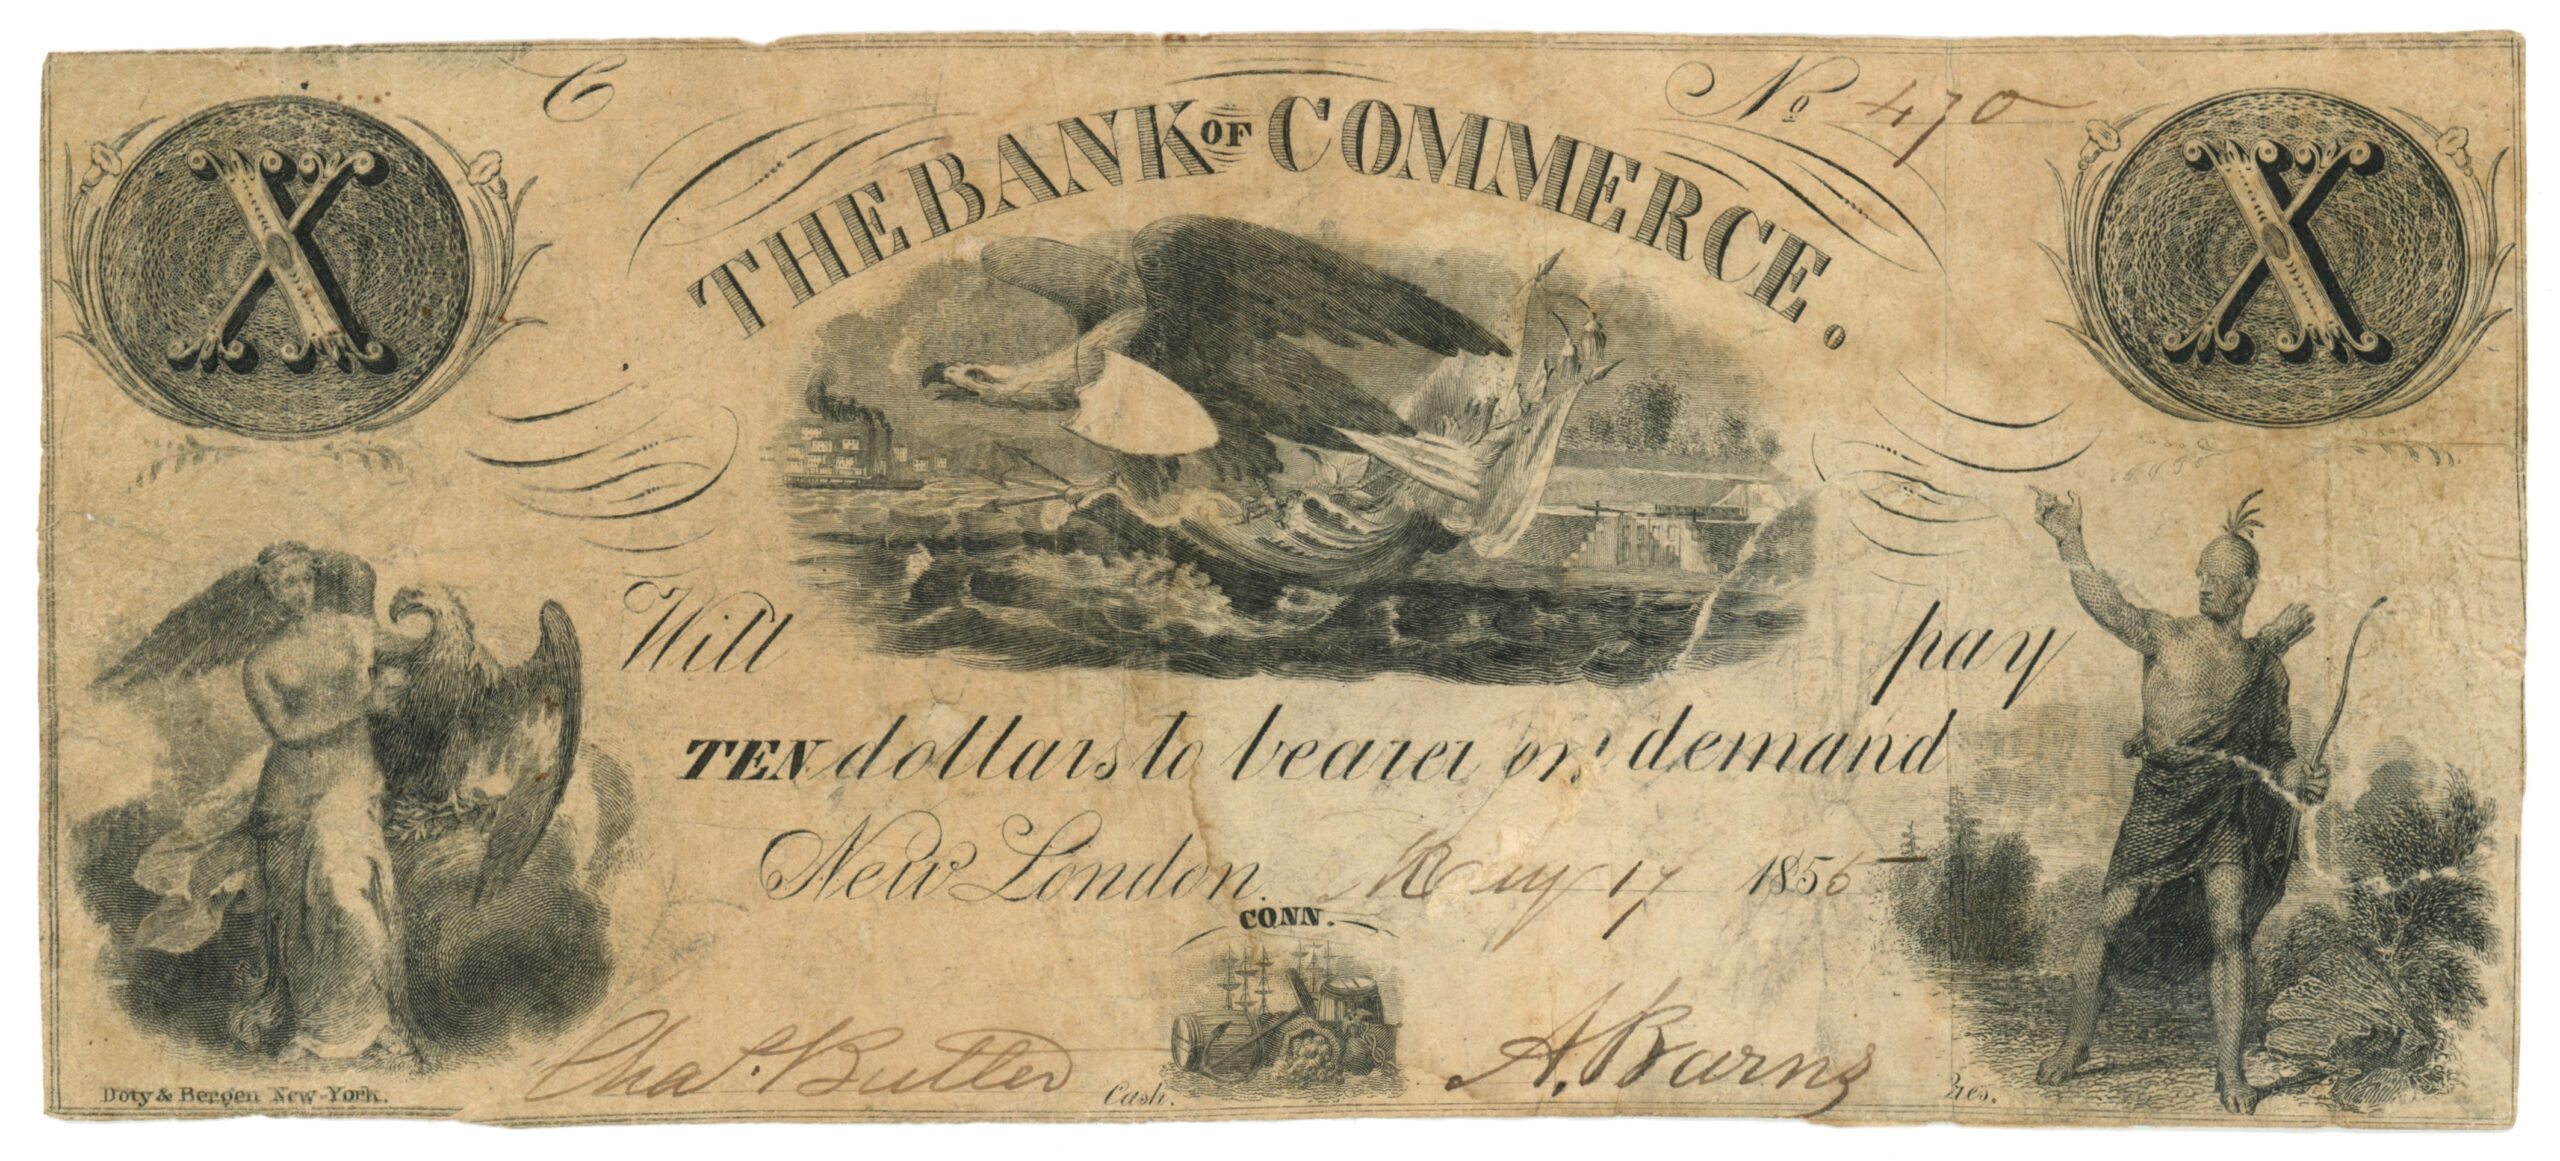 C
No 470
X X
THE BANK OF COMMERCE.
Will pay
TEN dollars to bearer on demand
New London. May 17 1855
CONN.
Chas. Butler Cash. A. Barns Pres.
Doty & Bergen New-York.